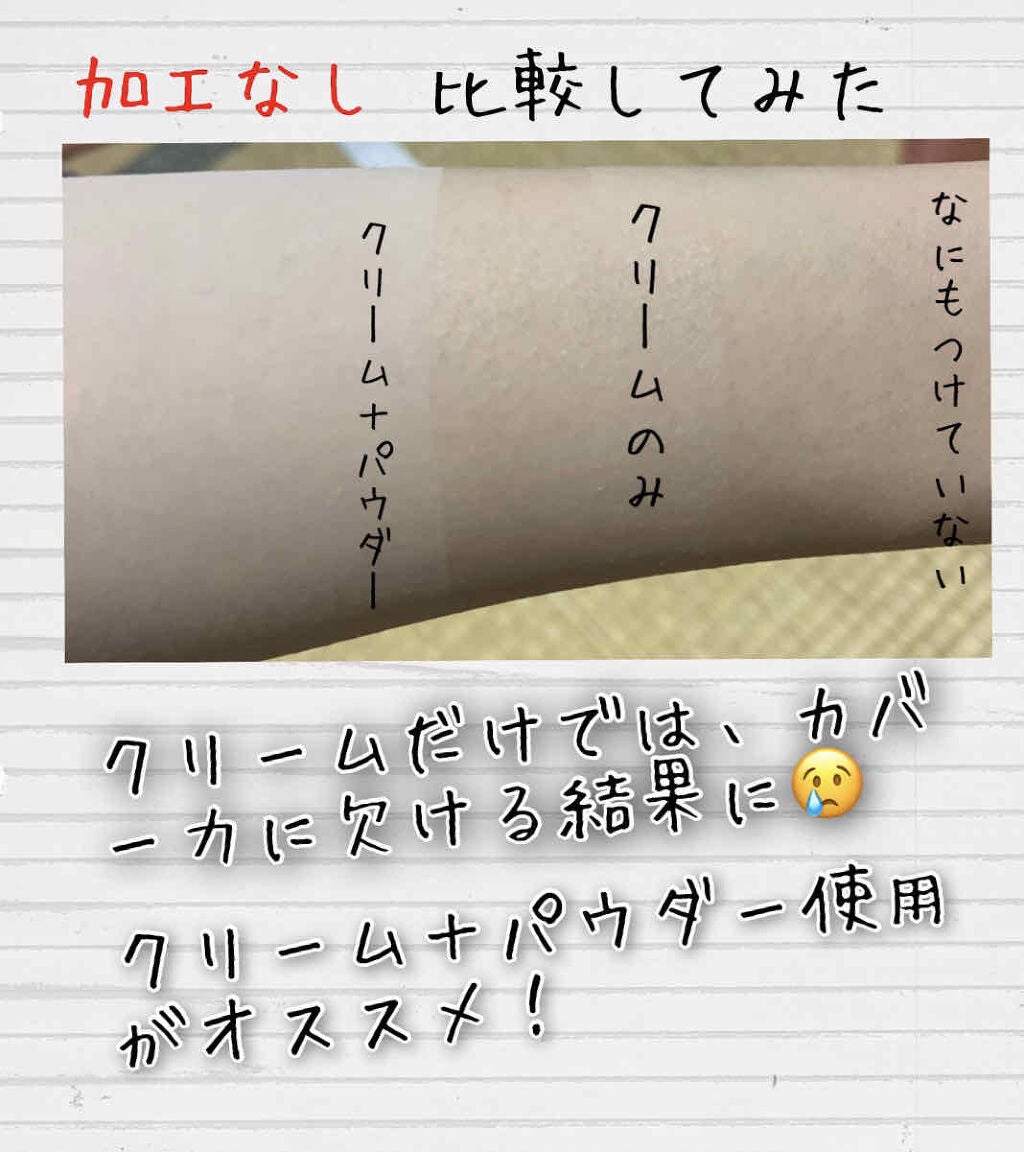 加工なし 比較してみた
クリーム+パウダー
クリームのみ
なにもつけていない
クリームだけでは、カバ
ー力に欠ける結果に😢
クリーム+パウダー使用
がオススメ!